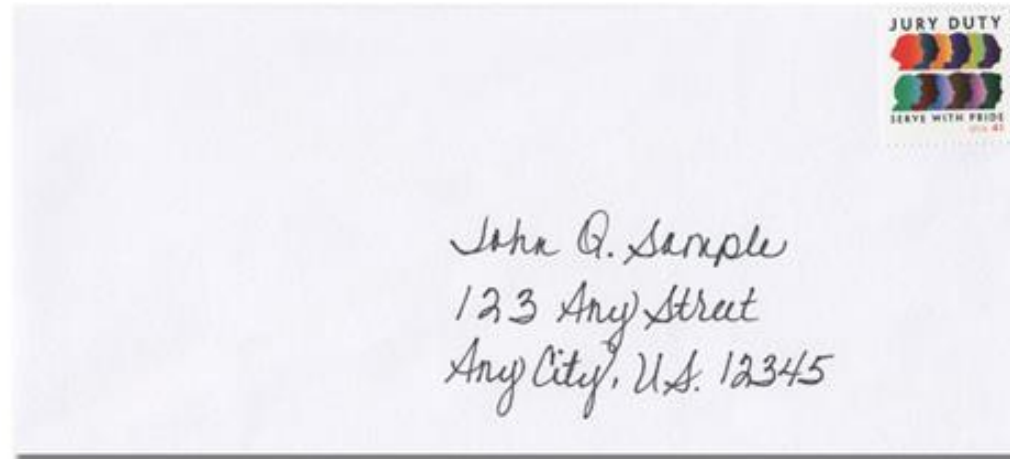 JURY DUTY
SERVE WITH PRIDE
USA 41
John Q. Sample
123 Any Street
Any City, U.S. 12345